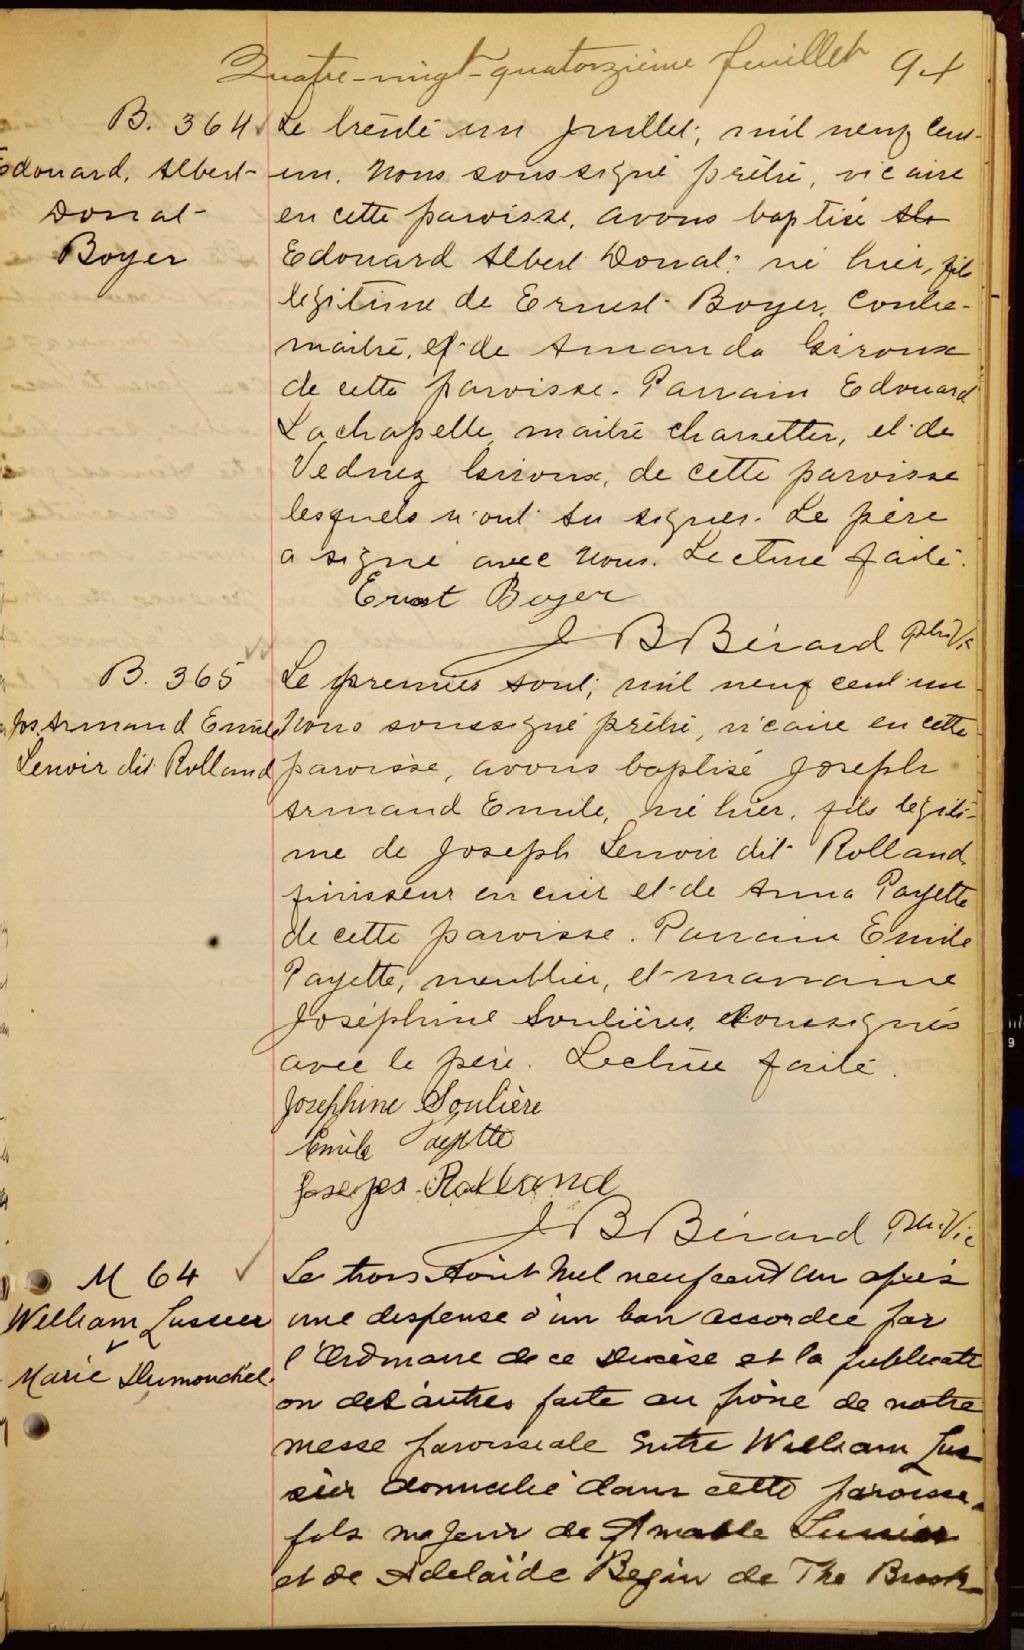 Quatre-vingt-quatorzième feuillet 94
B. 364
Edouard, Albert-
Donat-
Boyer
Le trente un juillet, mil neuf cent-
un. Nous soussigné prêtre, vicaire
en cette paroisse, avons baptisé
Edouard Albert Donat né hier, fils
legitime de Ernest Boyer, contre-
maitre, et de Amanda Giroux
de cette paroisse. Parrain Edouard
Lachapelle, maitre charretier, et de
Giroux, de cette paroisse
lesquels n'ont su signer. Le père
a signé avec nous. Lecture faite.
Ernest Boyer
J B Bérard Ptre Vic
B. 365
Jos. Armand Emile
Lenoir dit Rolland
Le premier aout, mil neuf cent un
Nous soussigné prêtre, vicaire en cette
paroisse, avons baptisé Joseph
Armand Emile, né hier, fils legiti-
me de Joseph Lenoir dit Rolland,
finisseur en cuir et de Anna Payette
de cette paroisse. Parrain Emile
Payette, meublier, et marraine
Joséphine Soulières, soussignés
avec le père. Lecture faite.
Josephine Soulière
Emile Payette
Joseph Rolland
J B Bérard Ptre Vic
M 64
William Lussier
&
Marie Dumouchel
Le trois Août Mil neuf cent un après
une dispense d'un ban accordée par
l'Ordinaire de ce Diocèse et la publicati
on des autres faite au prône de notre
messe paroissiale entre William Lus
sier domicilié dans cette paroisse,
fils majeur de Amable Lussier
et de Adelaïde Begin de The Brook